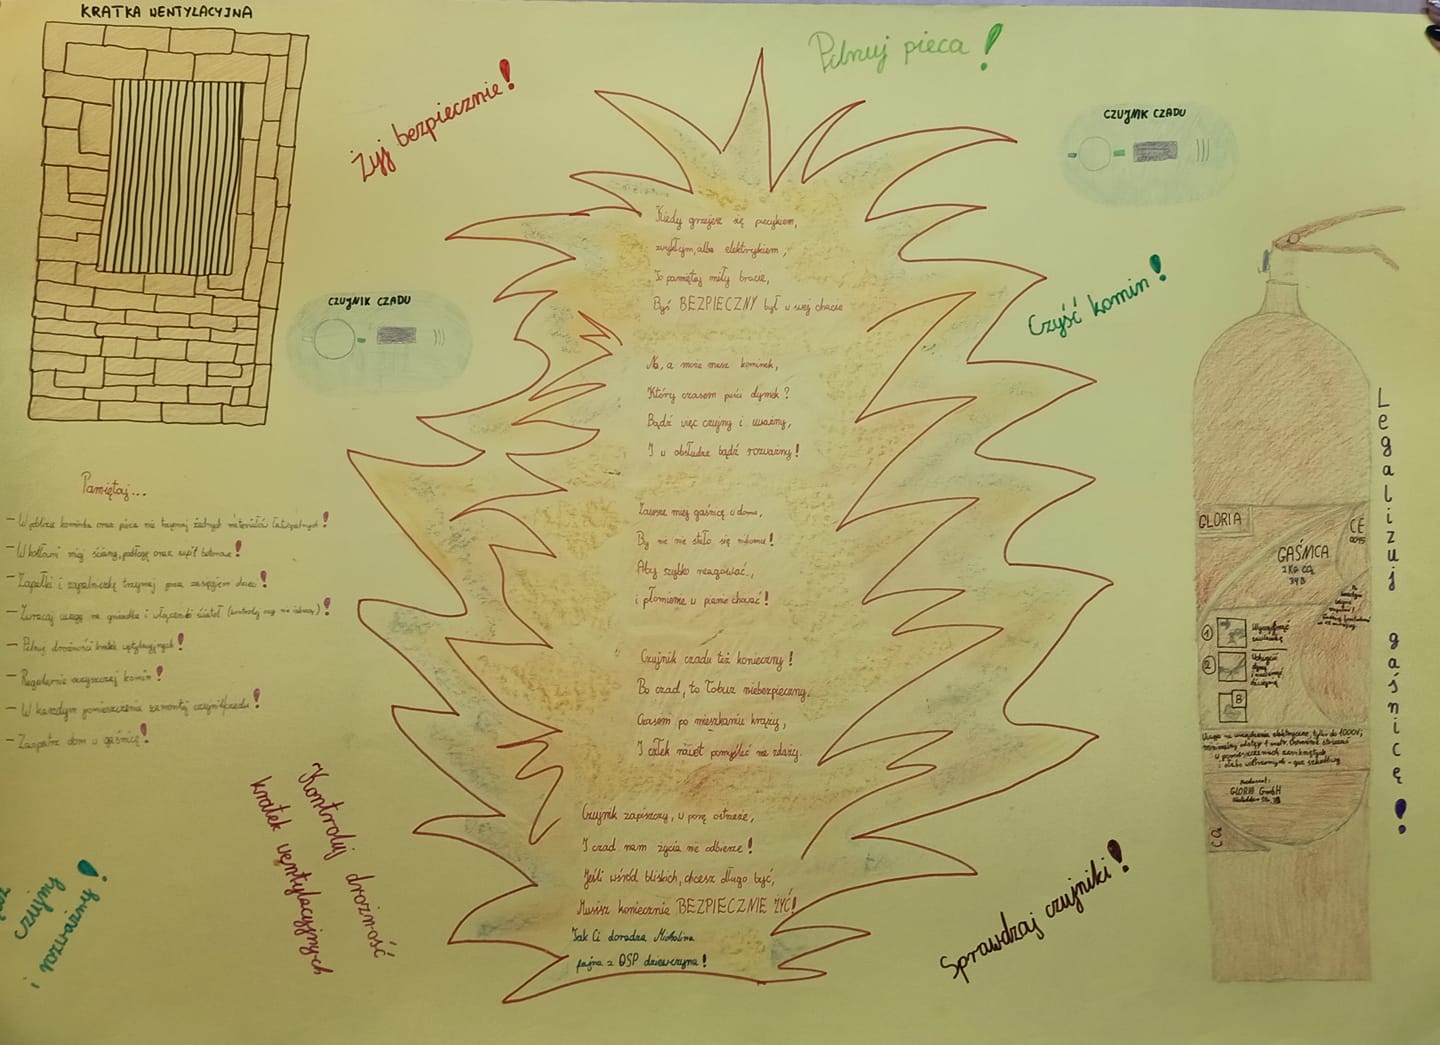 KRATKA WENTYLACYJNA
Żyj bezpiecznie!
Pilnuj pieca!
CZUJNIK CZADU
CZUJNIK CZADU
Czyść komin!
Kiedy grzejesz się piecykiem,
zwykłym, albo elektrykiem,
To pamiętaj miły bracie,
Byś BEZPIECZNY był w swej chacie
No, a może masz kominek,
Który czasem puści dymek?
Bądź więc czujny i uważny,
I w obsłudze bądź rozważny!
Zawsze miej gaśnicę w domu,
By nie stało się nikomu!
Aby szybko reagować,
i płomienie w pianie chować!
Czujnik czadu też konieczny!
Bo czad, to łobuz niebezpieczny.
Czasem po mieszkaniu krąży,
I człek nawet pomyśleć nie zdąży.
Czujnik zapiszczy, w porę ostrzeże,
I czad nam życia nie odbierze!
Jeśli wśród bliskich, chcesz długo być,
Musisz koniecznie BEZPIECZNIE ŻYĆ!
Tak Ci doradza Michalina
fajna z OSP dziewczyna!
Pamiętaj...
- W pobliżu kominka oraz pieca nie trzymaj żadnych materiałów łatwopalnych!
- W kotłowni miej ściany, podłogę oraz sufit betonowe!
- Zapałki i zapalniczkę trzymaj poza zasięgiem dzieci!
- Zwracaj uwagę na gniazdka i włączniki świateł (kontroluj czy nie iskrzą)!
- Pilnuj drożności kratek wentylacyjnych!
- Regularnie oczyszczaj komin!
- W każdym pomieszczeniu zamontuj czujnik czadu!
- Zaopatrz dom w gaśnicę!
Kontroluj drożność
kratek wentylacyjnych
czujny
i rozważny!
Sprawdzaj czujniki!
Legalizuj gaśnicę!
GLORIA
CE
0045
GAŚNICA
2 KG CO₂
34B
1
2
B
Uwaga na urządzenia elektryczne, tylko do 1000V,
GLORIA GmbH